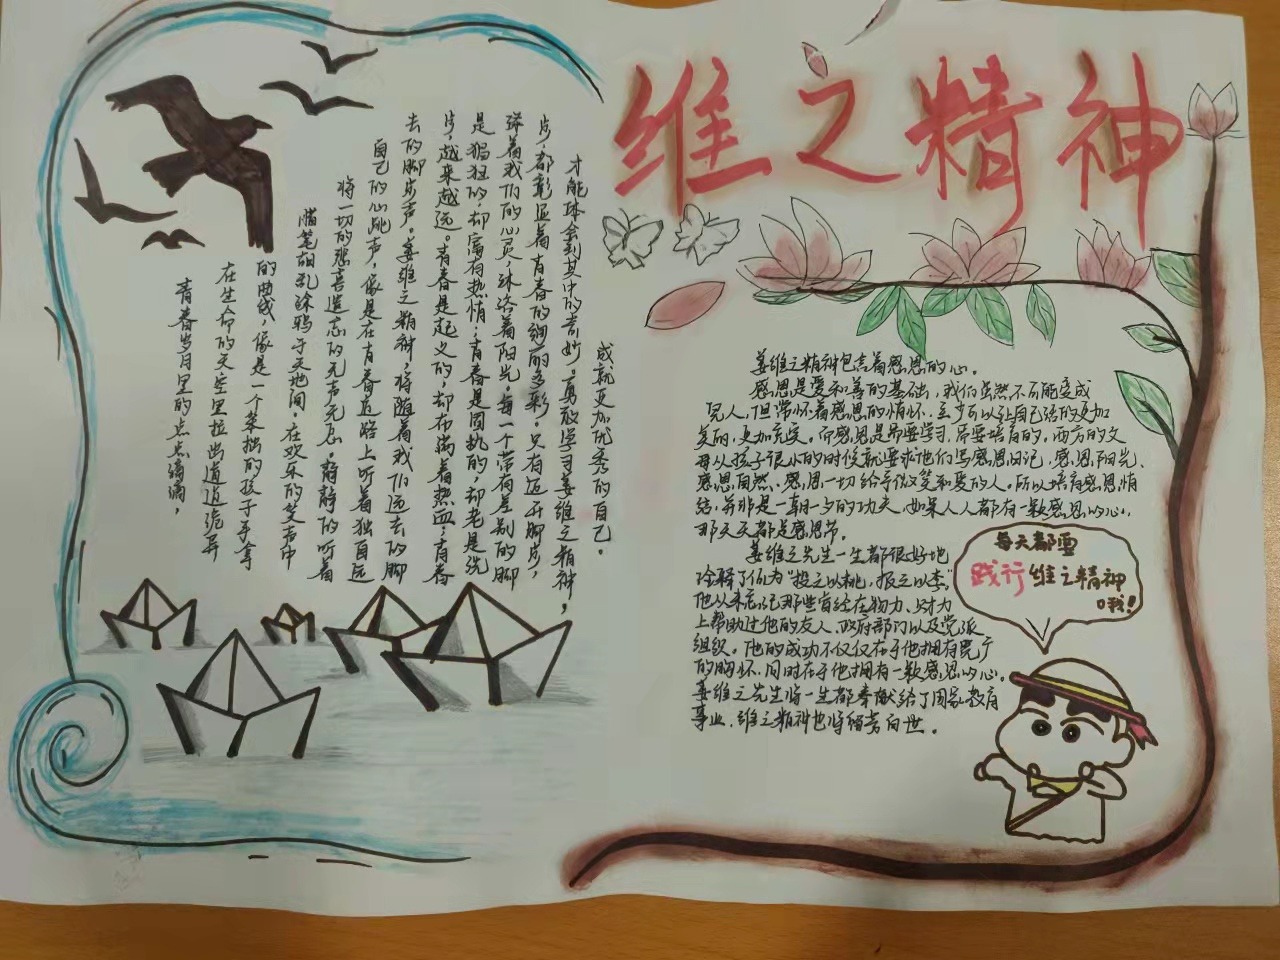 维之精神
青春岁月里的点点滴滴，
在生命的天空里拉出道道诡异
的曲线，像是一个笨拙的孩子手拿
蜡笔胡乱涂鸦于天地间。在欢乐的笑声中
将一切的悲喜遗忘的无声无息。静静的听着
自己的心跳声，像是在青春道路上听着独自远
去的脚步声。姜维之精神，将随着我们远去的脚
步，越来越远。青春是起义的，却布满着热血；青春
是猖狂的，却富有热情；青春是固执的，却老是洗
着我们的心灵，沐浴着阳光，每一个带有差别的脚
步，都彰显着青春的绚丽多彩。只有迈开脚步，
才能体会到其中的奇妙。勇敢学习姜维之精神，
成就更加优秀的自己。
姜维之精神包含着感恩的心。
感恩是爱和善的基础，我们虽然不可能变成
完人，但常怀着感恩的情怀，至少可以让自己活的更加
美丽，更加充实。而感恩是需要学习，需要培育的。西方的父
母从孩子很小的时候就要求他们写感恩日记，感恩阳光、
感恩自然、感恩一切给予微笑和爱的人。所以培育感恩情
结，并非是一朝一夕的功夫，如果人人都有一颗感恩的心，
那天天都是感恩节。
姜维之先生一生都很好地
诠释了何为“投之以桃，报之以李”
他从未忘记那些曾经在物力、财力
上帮助过他的友人、政府部门以及党派
组织。他的成功不仅仅在于他拥有宽广
的胸怀，同时在于他拥有一颗感恩的心。
姜维之先生将一生都奉献给了国家教育
事业，维之精神也将留芳百世。
每天都要
践行维之精神
哦！